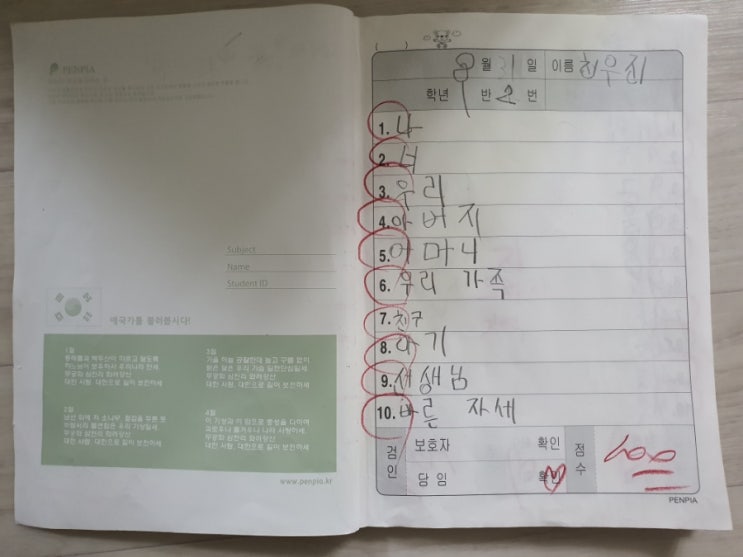 PENPIA
Subject
Name
Student ID
애국가를 불러봅시다!
1절
동해물과 백두산이 마르고 닳도록
하느님이 보우하사 우리나라 만세
무궁화 삼천리 화려강산
대한 사람, 대한으로 길이 보전하세
2절
남산 위에 저 소나무, 철갑을 두른 듯
바람서리 불변함은 우리 기상일세
무궁화 삼천리 화려강산
대한 사람, 대한으로 길이 보전하세
3절
가을 하늘 공활한데 높고 구름 없이
밝은 달은 우리 가슴 일편단심일세
무궁화 삼천리 화려강산
대한 사람, 대한으로 길이 보전하세
4절
이 기상과 이 맘으로 충성을 다하여
괴로우나 즐거우나 나라 사랑하세
무궁화 삼천리 화려강산
대한 사람, 대한으로 길이 보전하세
www.penpia.kr
( )
월 31 일 이름 최우진
학년 반 2 번
1. 나
2. 너
3. 우리
4. 아버지
5. 어머니
6. 우리 가족
7. 친구
8. 아기
9. 선생님
10. 바른 자세
검인 보호자 확인 점수 100
담임 확인
PENPIA